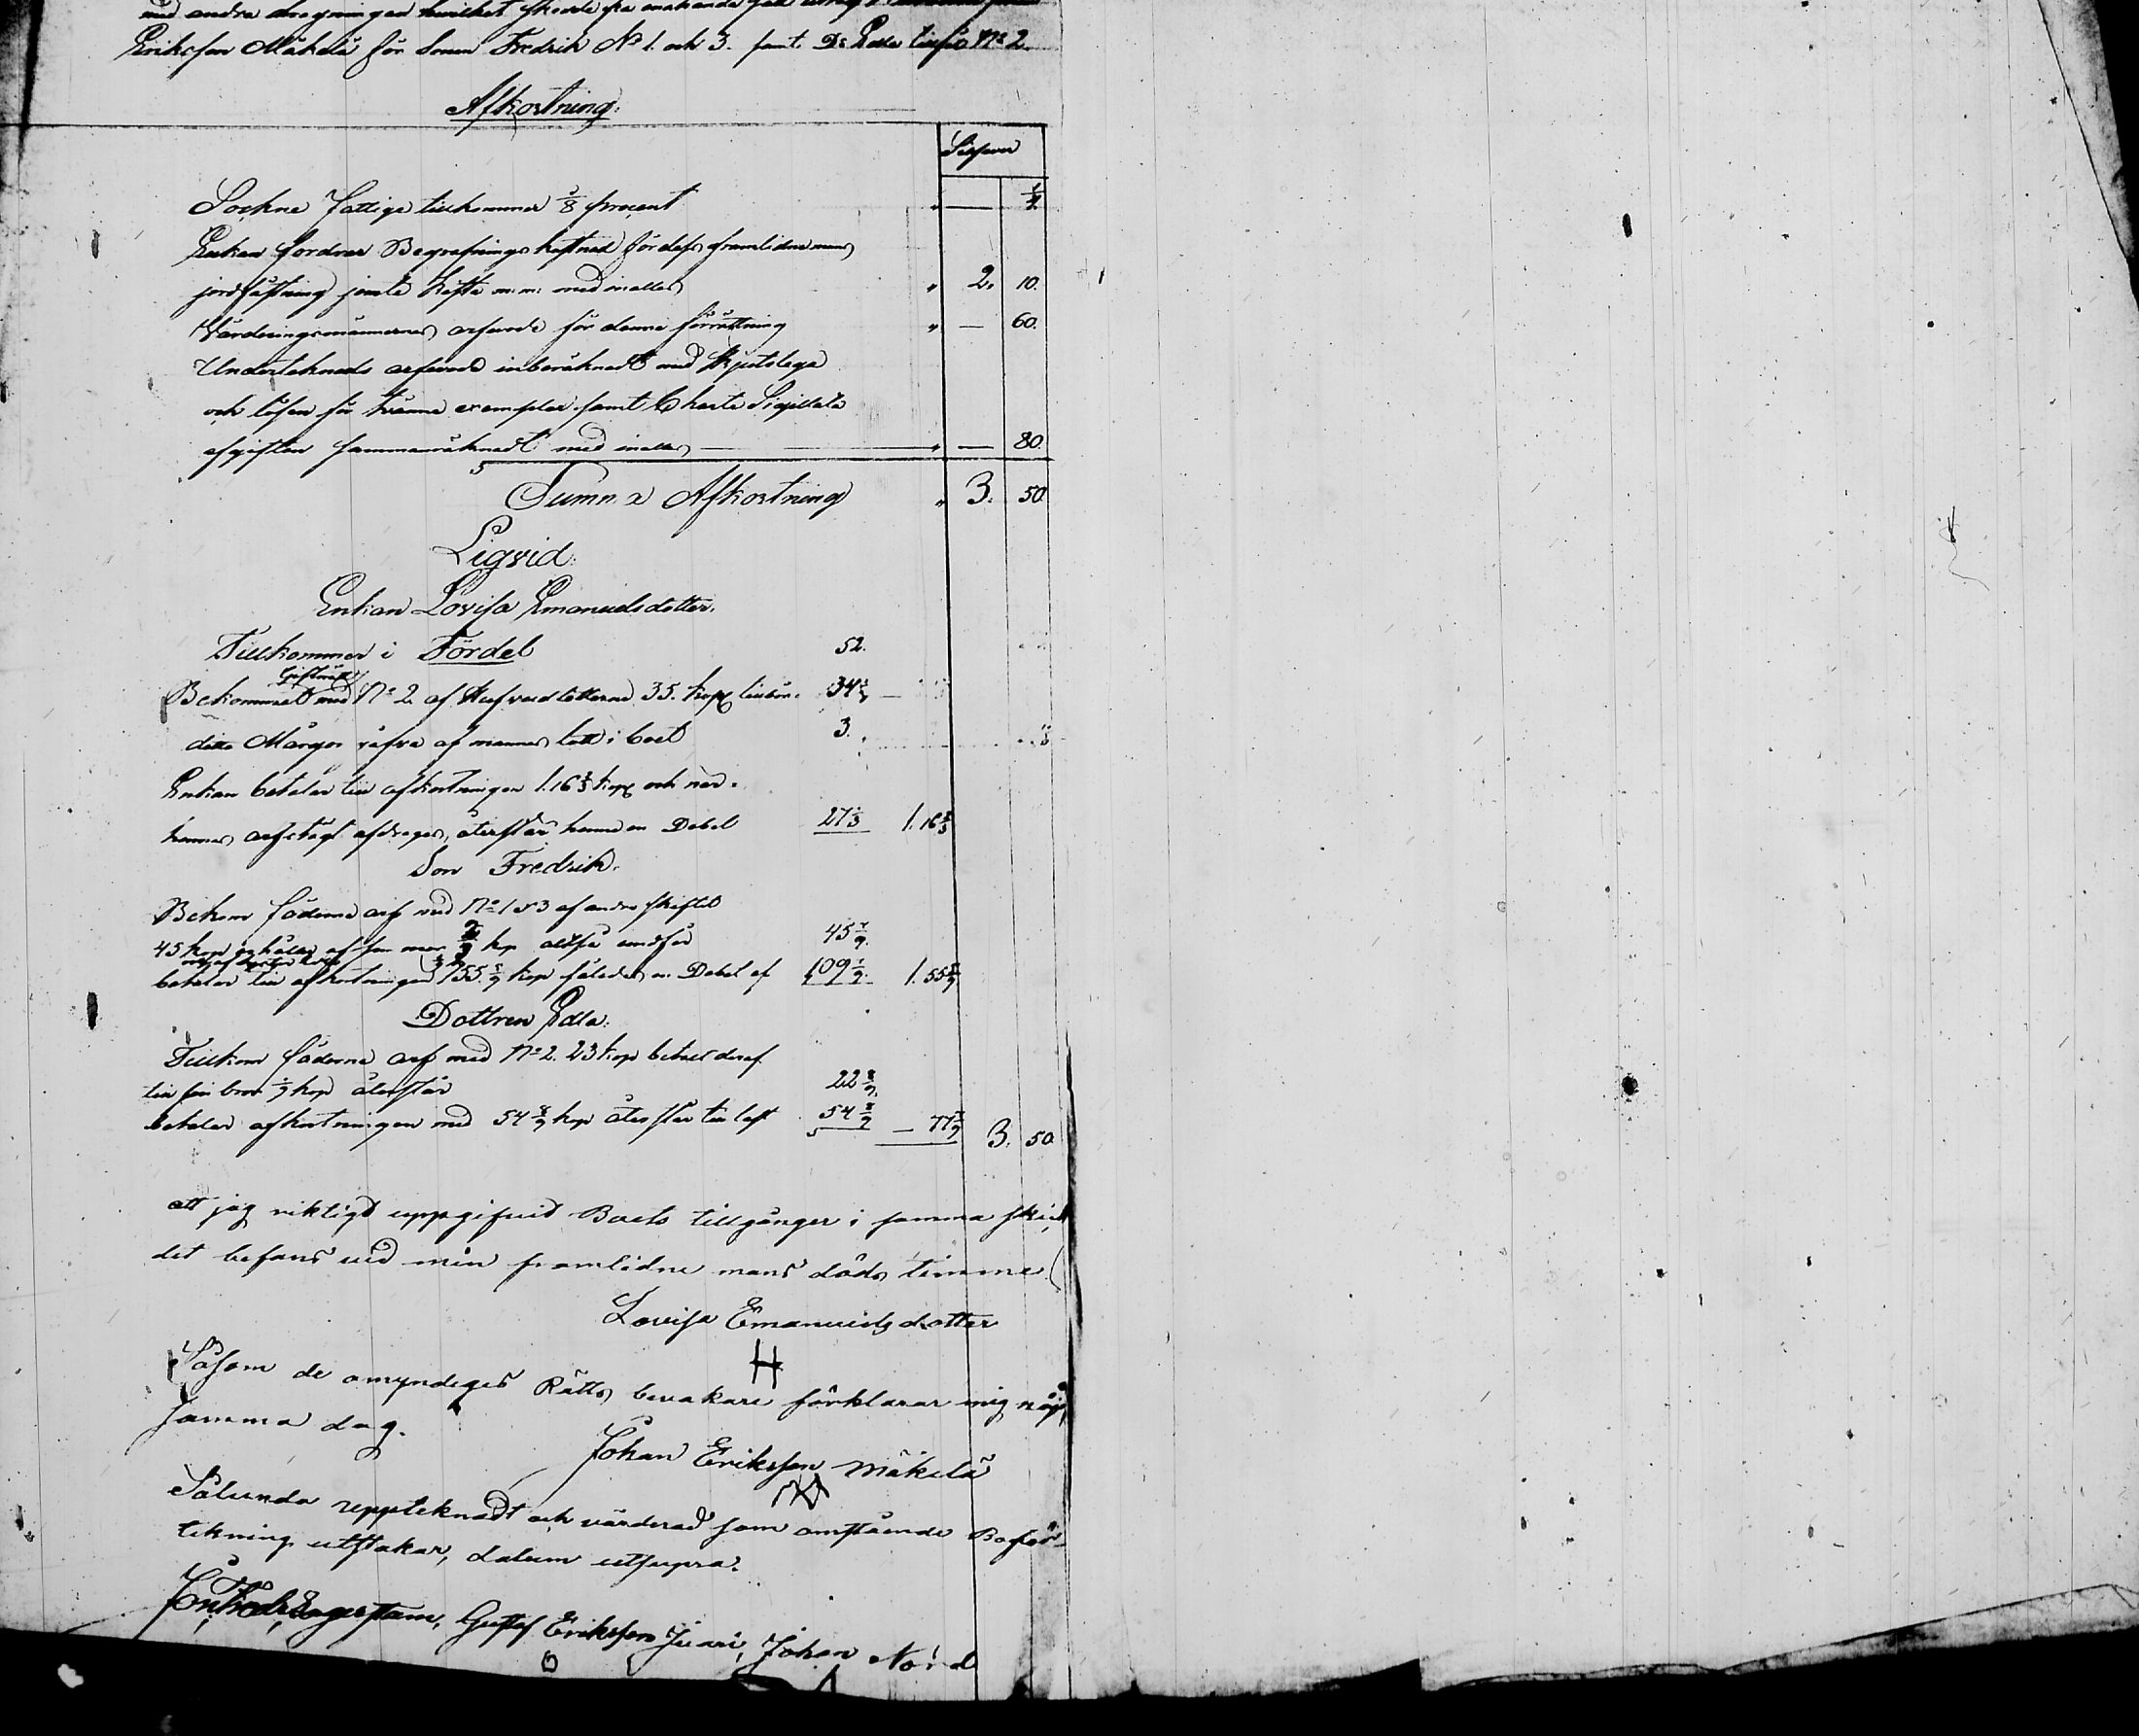 med andra dragningen hvilket skedde
Eriksson Mäkelä för Sonen Fredrik No 1. och 3. samt Dr Edla tillföll No 2.
Afkortning:
Silfver
Sockne fattige tillkommer 1/8 procent " — 1/4
Enkan fordrar Begrafnings kostnad för dess framlidne mans
jordfästning jemte kista m: m: med inalles " 2. 10.
Värderingsmännernas arfvode för denna förrättning " — 60.
Undertecknads arfvode inberäknadt med skjutslega
och lösen för tvänne exemplar samt Charta Sigillata
afgiften sammanräknadt med inalles " — 80.
Summa Afkortning " 3. 50
Liqvid:
Enkan Lovisa Emanuelsdotter.
Tillkommer i Fördel 52.
Giftorätt
Bekommat med No 2 af Hufvudlotterna 35. kop 34
ditto Morgongåfva af mannens lott i boet 3.
Enkan betalar till afkortningen 1.16 2/3 kop och när
hennes afdrages, återstår henne en Debet 27 1/3 1.16 2/3
Son Fredrik.
Bekom fäderne arf med No 1 & 3 af andra skiftet
45 kop af sin mor kp 45 7/9.
betalar till afkortningen 1.55 5/9 kop således en Debet af 109 7/9. 1.55 5/9
Dottren Edla:
Tillkom fäderne arf med No 2. 23 kop betalt deraf
till sin bror 1/9 kop återstår 22 8/9.
betalar afkortningen med 54 8/9 kop återstår till last 54 8/9 — 77 7/9 3. 50
att jag riktigt uppgifvit Boets tillgånger i samma skick
det befans vid min framlidne mans döds timme
Lovisa Emanuelsdotter
H
Såsom de omyndiges Rätts bevakare förklarar mig nöjd
samma dag.
Johan Eriksson Mäkelä
Sålunda uppteknadt och värderad som omstående Boför-
tekning utstakar, datum utsupra.
Gustaf Eriksson Juari, Johan Nord